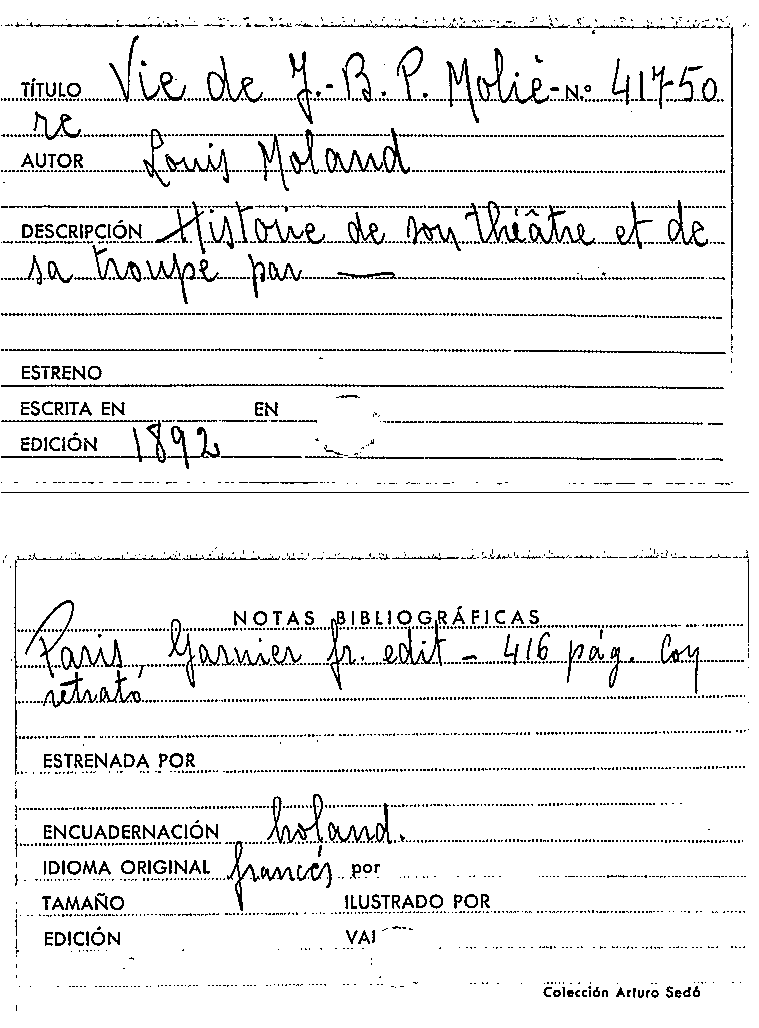 TÍTULO Vie de J.-B. P. Moliè- N.º 417-50
re
AUTOR Louis Moland
DESCRIPCIÓN Histoire de son théâtre et de
sa troupe par —
ESTRENO
ESCRITA EN EN
EDICIÓN 1892
NOTAS BIBLIOGRÁFICAS
Paris, Garnier fr. edit - 416 pág. Con
retrato
ESTRENADA POR
ENCUADERNACIÓN holand.
IDIOMA ORIGINAL francés por
TAMAÑO ILUSTRADO POR
EDICIÓN
Colección Arturo Sedó